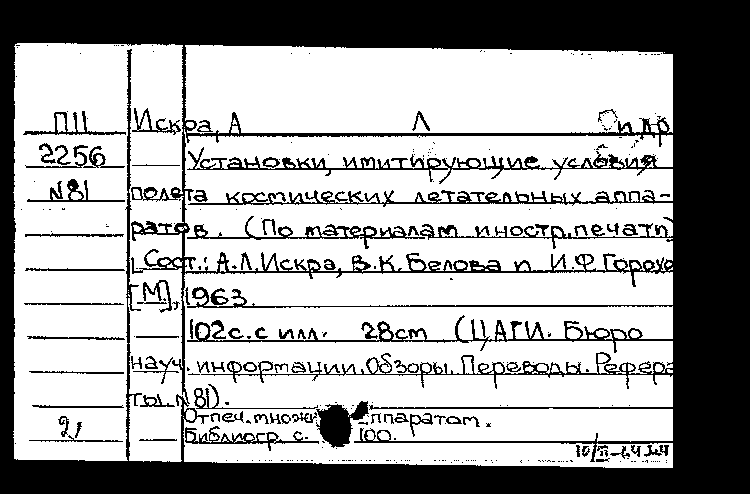 П11 Искра, А Л и др
2256 Установки, имитирующие условия
№81 полета космических летательных аппа-
ратов. (По материалам иностр.печати)
Сост.: А.Л.Искра, В.К.Белова и И.Ф.Горохо
[М], 1963.
102с.с илл. 28см (ЦАГИ. Бюро
науч. информации.Обзоры.Переводы.Рефера
ты.№81).
Отпеч.множит аппаратом.
Библиогр. с. 100.